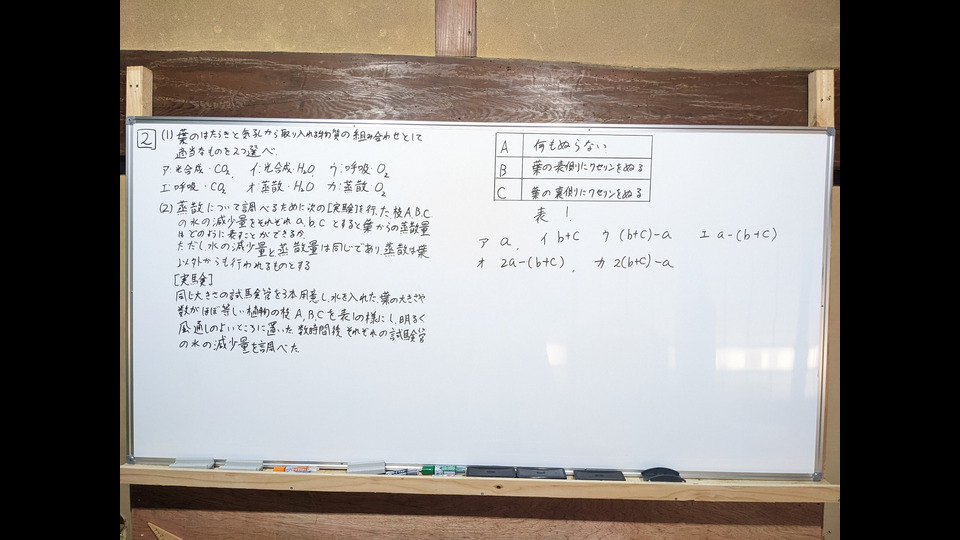 2 (1) 葉のはたらきと気孔から取り入れる物質の組み合わせとして
適当なものを2つ選べ.
ア:光合成・CO2 イ:光合成・H2O ウ:呼吸・O2
エ:呼吸・CO2 オ:蒸散・H2O カ:蒸散・O2
(2) 蒸散について調べるために次の[実験]を行った枝A,B,C
の水の減少量をそれぞれa,b,cとすると葉からの蒸散量
はどのように表すことができるか
ただし,水の減少量と蒸散量は同じであり,蒸散は葉
以外からも行われるものとする
[実験]
同じ大きさの試験管を3本用意し,水を入れた 葉の大きさや
数がほぼ等しい植物の枝A,B,Cを表1の様にし,明るく
風通しのよいところに置いた 数時間後それぞれの試験管
の水の減少量を調べた
A 何もぬらない
B 葉の表側にワセリンをぬる
C 葉の裏側にワセリンをぬる
表1
ア a. イ b+c ウ (b+c)-a エ a-(b+c)
オ 2a-(b+c). カ 2(b+c)-a